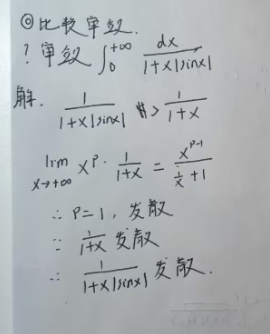 ◎比较审敛.
? 审敛 ∫₀^{+∞} dx / (1+x|sinx|)
解. 1/(1+x|sinx|) > 1/(1+x)
lim_{x→+∞} x^p · 1/(1+x) = x^{p-1} / (1/x + 1)
∴ p=1, 发散
∵ 1/(1+x) 发散
∴ 1/(1+x|sinx|) 发散.